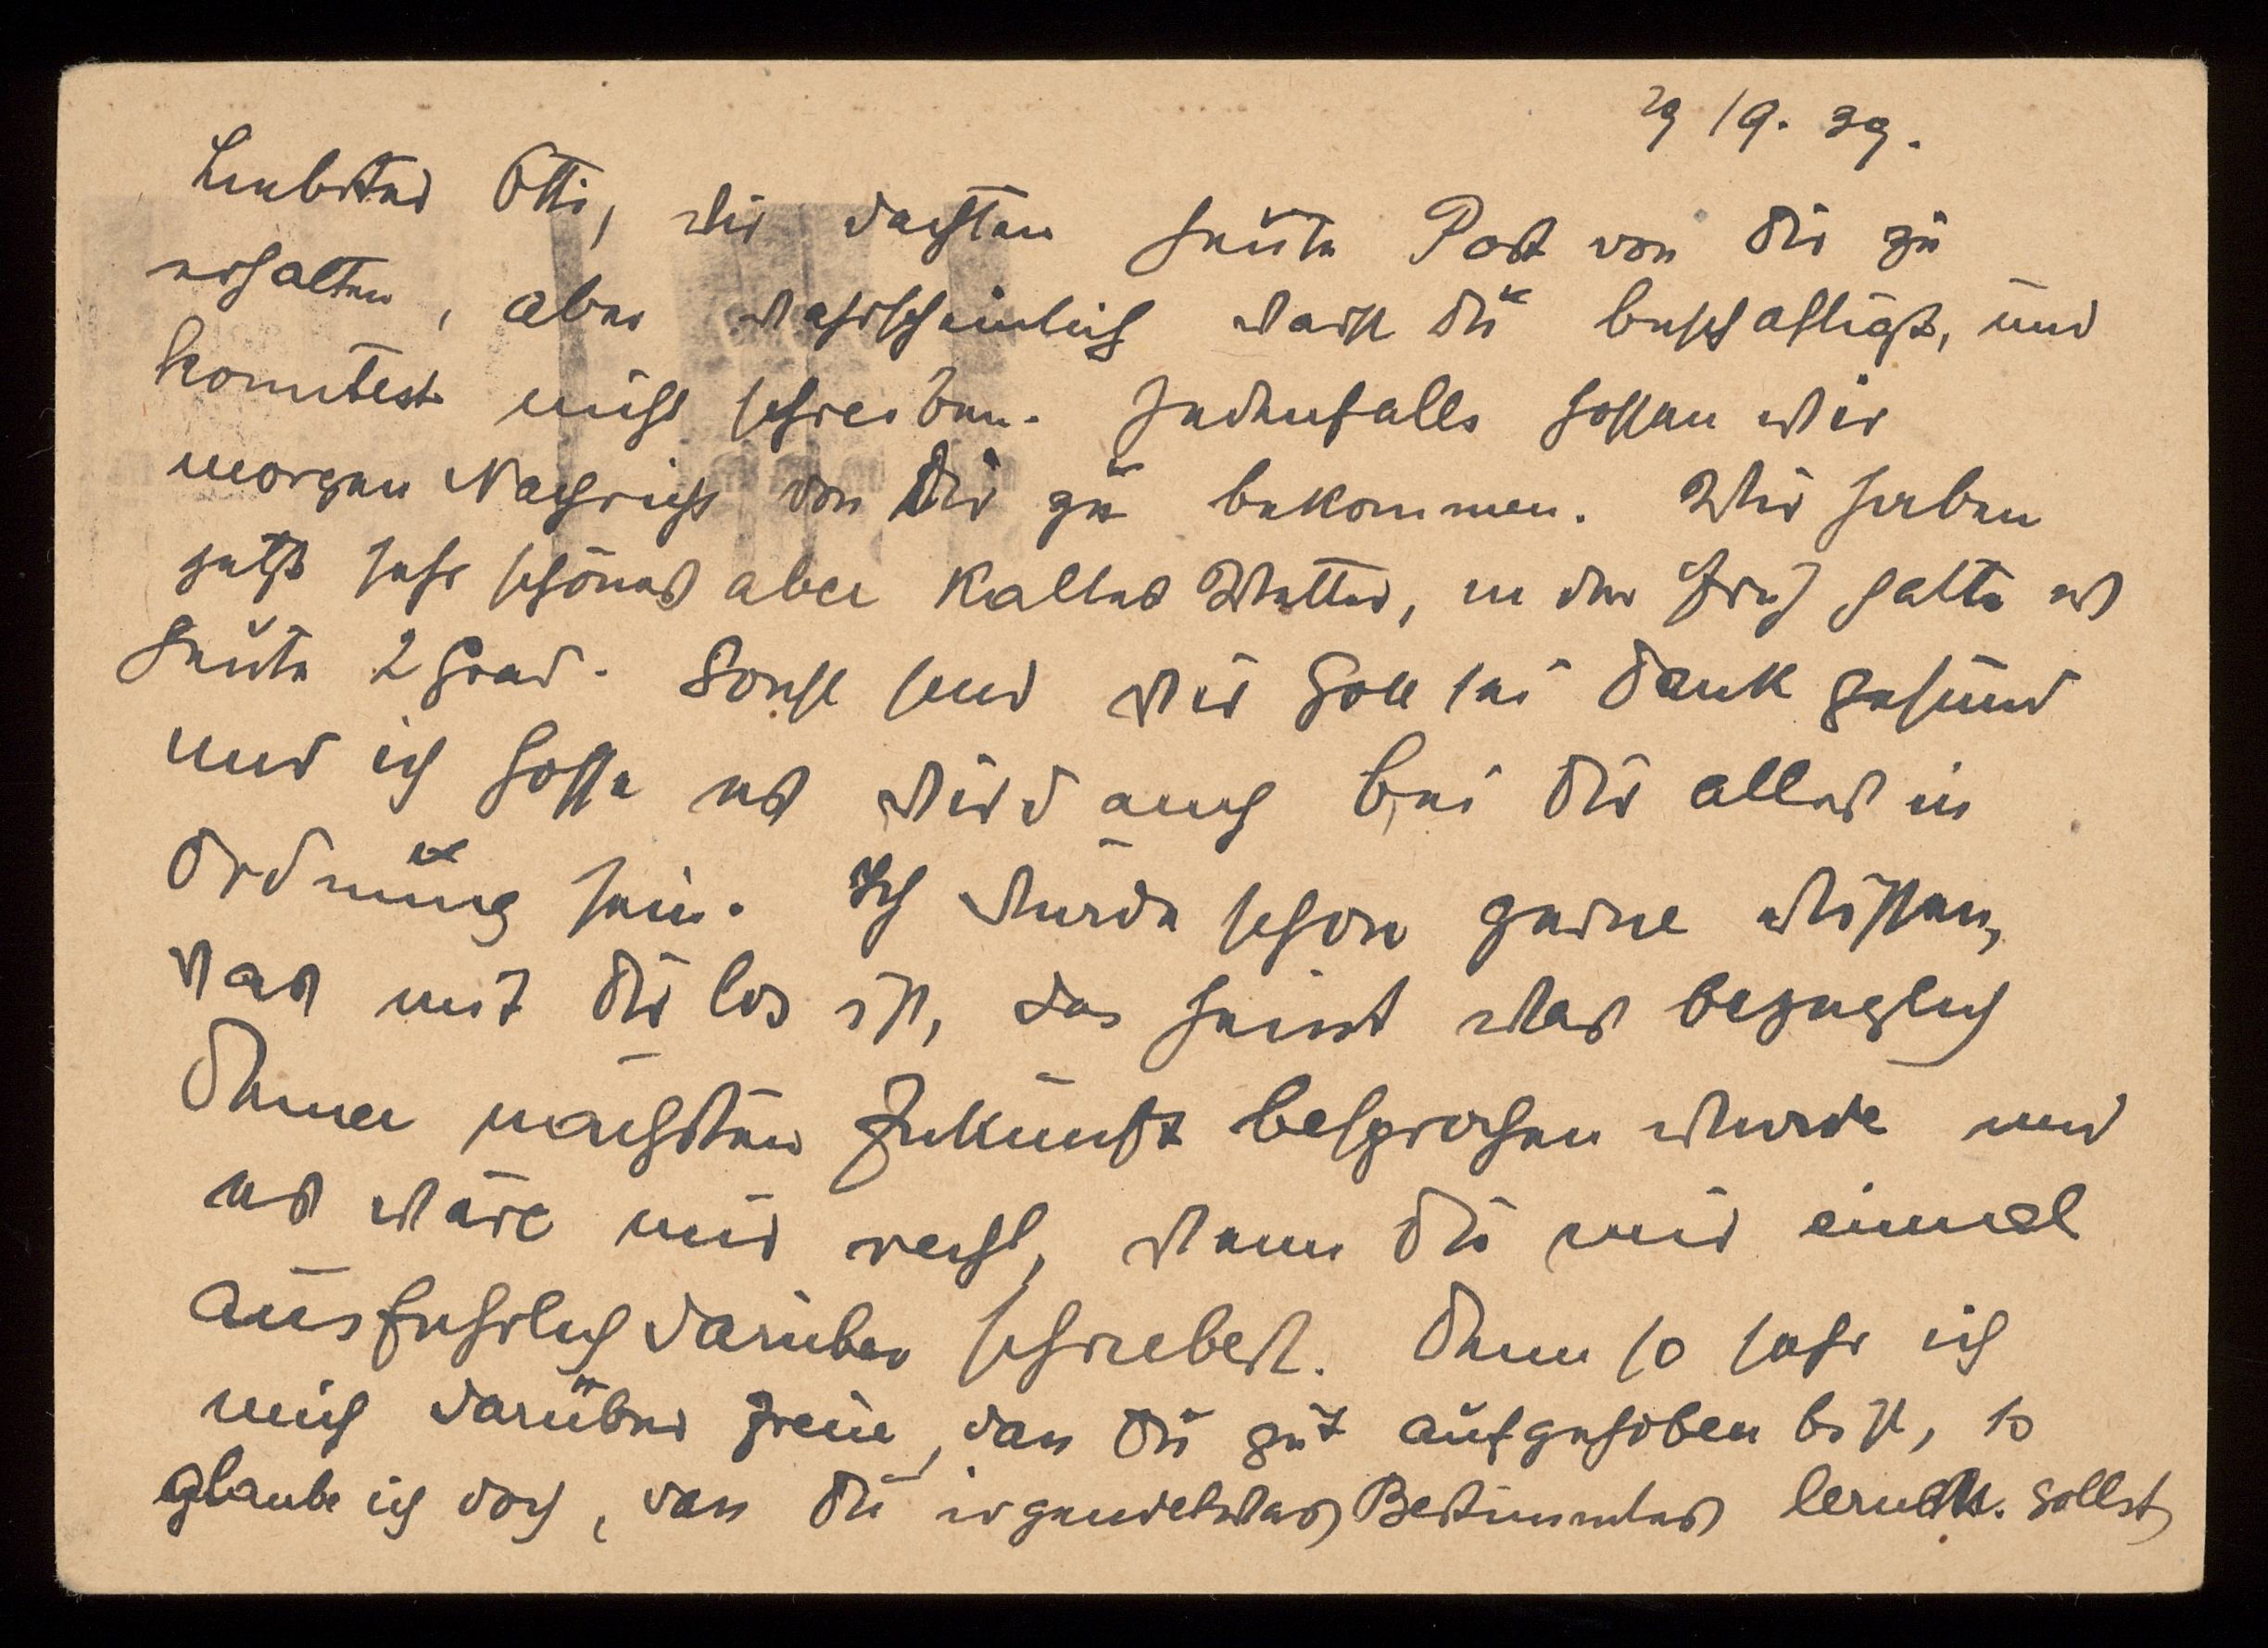 29/9. 39.
Liebster Otti, wir dachten heute Post von Dir zu
erhalten, aber wahrscheinlich warst Du beschäftigt, und
konntest nicht schreiben. Jedenfalls hoffen wir
morgen Nachricht von Dir zu bekommen. Wir haben
jetzt sehr schönes aber kaltes Wetter, in der Früh hatte es
heute 2 Grad. Sonst sind wir Gott sei Dank gesund
und ich hoffe es wird auch bei Dir alles in
Ordnung sein. Ich würde schon gerne wissen,
was mit Dir los ist, das heisst was bezuglich
Deiner nachsten Zukunft besprochen wurde und
es wäre mir recht, wenn Du mir einmal
ausfuhrlich darüber schriebest. Denn so sehr ich
mich darüber freue, dass Du gut aufgehoben bist, so
glaube ich doch, dass Du irgendetwas Bestimmtes lernen sollst